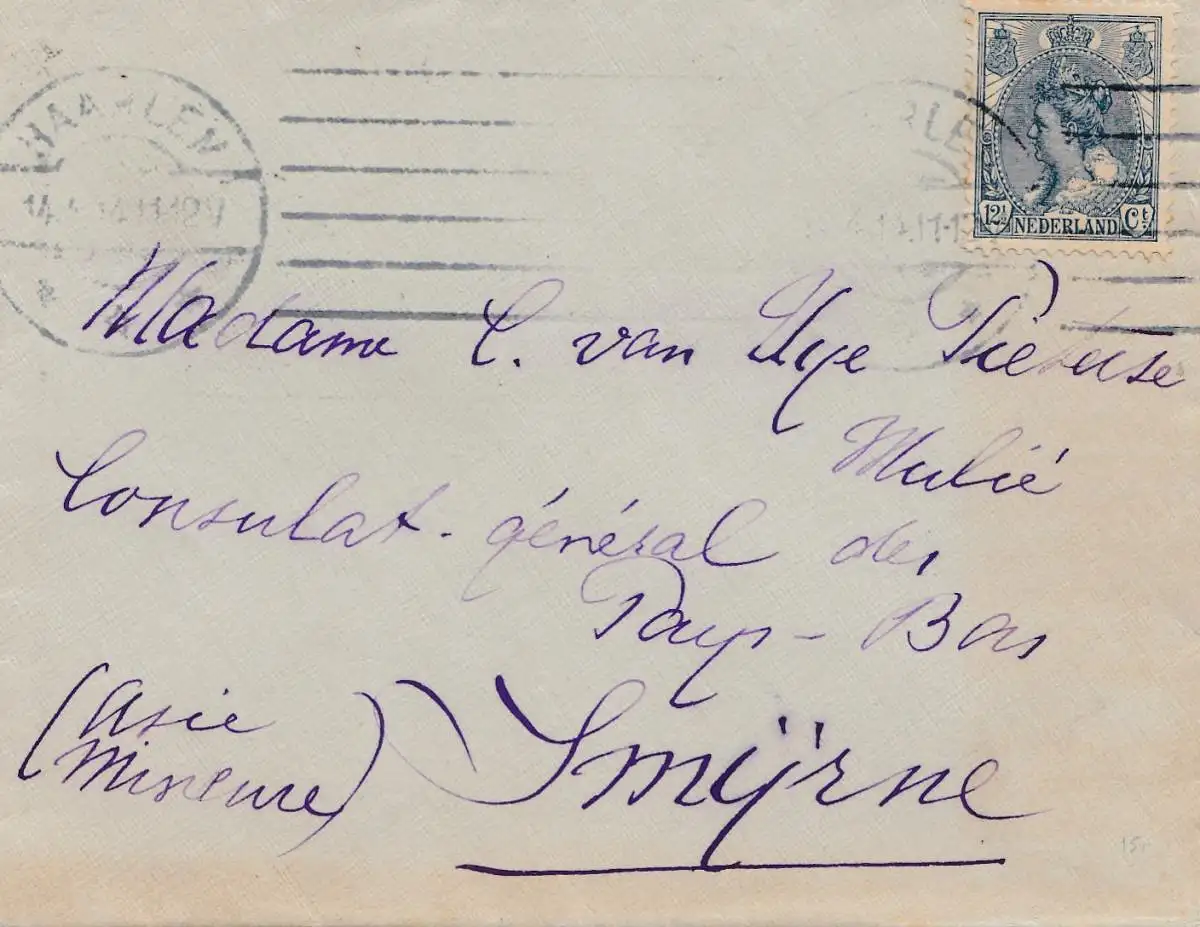 HAARLEM
14.4.14.11-12V
12½ NEDERLAND Ct
Madame C. van Uye Pieterse
Mulié
Consulat-général des
Pays-Bas
(Asie
Mineure)
Smÿrne